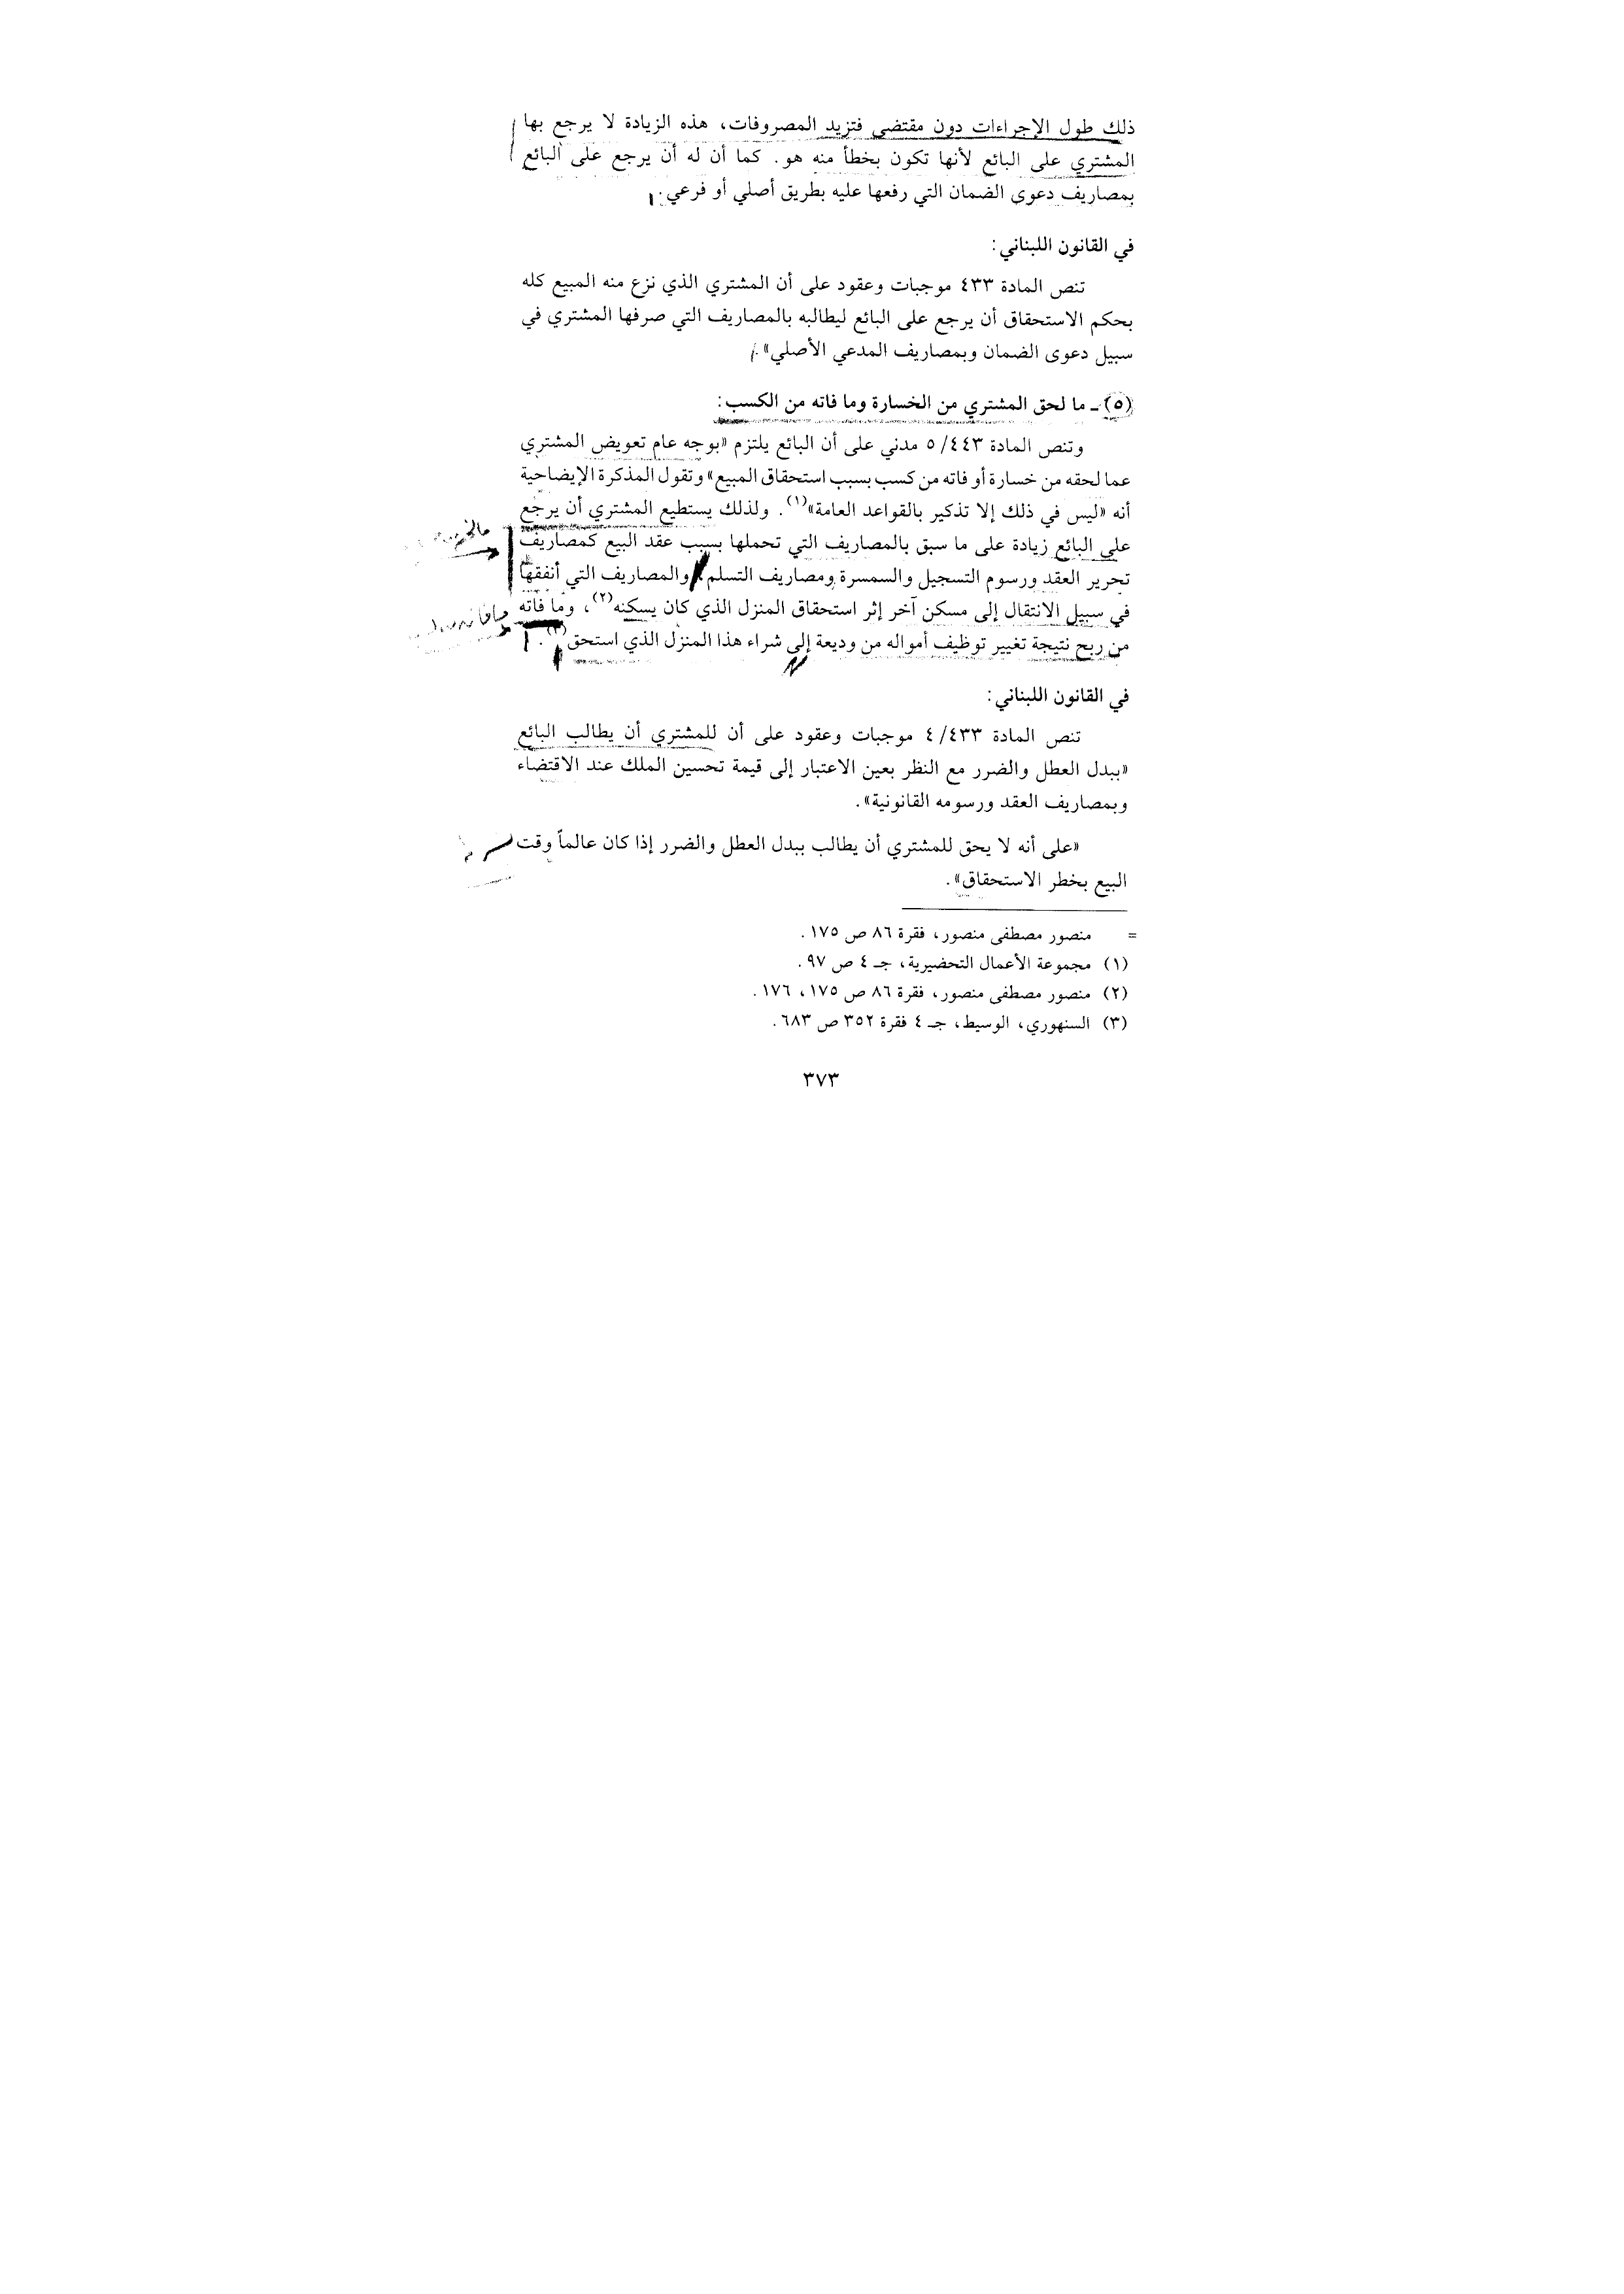 ذلك طول الإجراءات دون مقتضى فتزيد المصروفات، هذه الزيادة لا يرجع بها
المشتري على البائع لأنها تكون بخطأ منه هو. كما أن له أن يرجع على البائع
بمصاريف دعوى الضمان التي رفعها عليه بطريق أصلي أو فرعي.
في القانون اللبناني:
تنص المادة ٤٣٣ موجبات وعقود على أن المشتري الذي نزع منه المبيع كله
بحكم الاستحقاق أن يرجع على البائع ليطالبه بالمصاريف التي صرفها المشتري في
سبيل دعوى الضمان وبمصاريف المدعي الأصلي».
(٥) ـ ما لحق المشتري من الخسارة وما فاته من الكسب:
وتنص المادة ٥/٤٤٣ مدني على أن البائع يلتزم «بوجه عام تعويض المشتري
عما لحقه من خسارة أو فاته من كسب بسبب استحقاق المبيع» وتقول المذكرة الإيضاحية
أنه «ليس في ذلك إلا تذكير بالقواعد العامة»(١). ولذلك يستطيع المشتري أن يرجع
على البائع زيادة على ما سبق بالمصاريف التي تحملها بسبب عقد البيع كمصاريف
تحرير العقد ورسوم التسجيل والسمسرة ومصاريف التسلم والمصاريف التي أنفقها
في سبيل الانتقال إلى مسكن آخر إثر استحقاق المنزل الذي كان يسكنه(٢)، وما فاته
من ربح نتيجة تغيير توظيف أمواله من وديعة إلى شراء هذا المنزل الذي استحق(٣).
في القانون اللبناني:
تنص المادة ٤/٤٣٣ موجبات وعقود على أن للمشتري أن يطالب البائع
«ببدل العطل والضرر مع النظر بعين الاعتبار إلى قيمة تحسين الملك عند الاقتضاء
وبمصاريف العقد ورسومه القانونية».
«على أنه لا يحق للمشتري أن يطالب ببدل العطل والضرر إذا كان عالماً وقت
البيع بخطر الاستحقاق».
= منصور مصطفى منصور، فقرة ٨٦ ص ١٧٥.
(١) مجموعة الأعمال التحضيرية، جـ ٤ ص ٩٧.
(٢) منصور مصطفى منصور، فقرة ٨٦ ص ١٧٥، ١٧٦.
(٣) السنهوري، الوسيط، جـ ٤ فقرة ٣٥٢ ص ٦٨٣.
٣٧٣